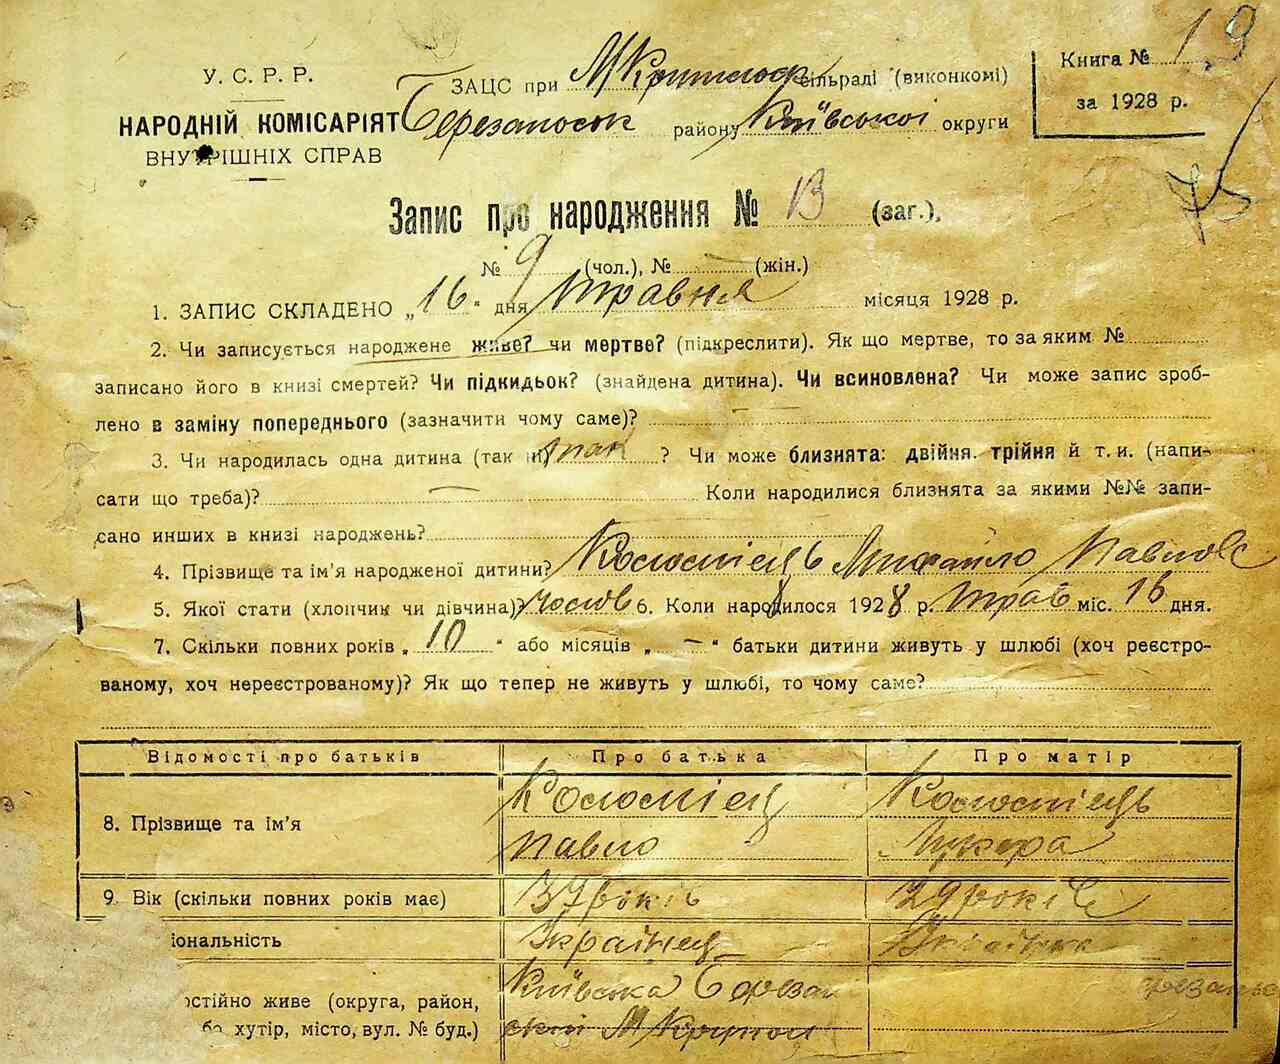 У. С. Р. Р.
НАРОДНІЙ КОМІСАРІЯТ
ВНУТРІШНІХ СПРАВ
ЗАЦС при сільраді (виконкомі)
району Київської округи
Книга № 19
за 1928 р.
75
Запис про народження № 13 (заг.),
№ 9 (чол.), № — (жін.)
1. ЗАПИС СКЛАДЕНО „16" дня травня місяця 1928 р.
2. Чи записується народжене живе? чи мертве? (підкреслити). Як що мертве, то за яким №
записано його в книзі смертей? Чи підкидьок? (знайдена дитина). Чи всиновлена? Чи може запис зроб-
лено в заміну попереднього (зазначити чому саме)? —
3. Чи народилась одна дитина (так ні) так ? Чи може близнята: двійня. трійня й т. и. (напи-
сати що треба)? — Коли народилися близнята за якими №№ запи-
сано инших в книзі народжень?
4. Прізвище та ім'я народженої дитини? Коломієць Михайло Павлов
5. Якої стати (хлопчик чи дівчина)? 6. Коли народилося 1928 р. трав міс. 16 дня.
7. Скільки повних років „10" або місяців „—" батьки дитини живуть у шлюбі (хоч реєстро-
ваному, хоч нереєстрованому)? Як що тепер не живуть у шлюбі, то чому саме?
Відомості про батьків Про батька Про матір
8. Прізвище та ім'я Коломієц Коломієць
Павло Лукера
9. Вік (скільки повних років має) 39 років 29 років
іональність Українец Українка
остійно живе (округа, район, Київська Березан
бо хутір, місто, вул. № буд.) ский